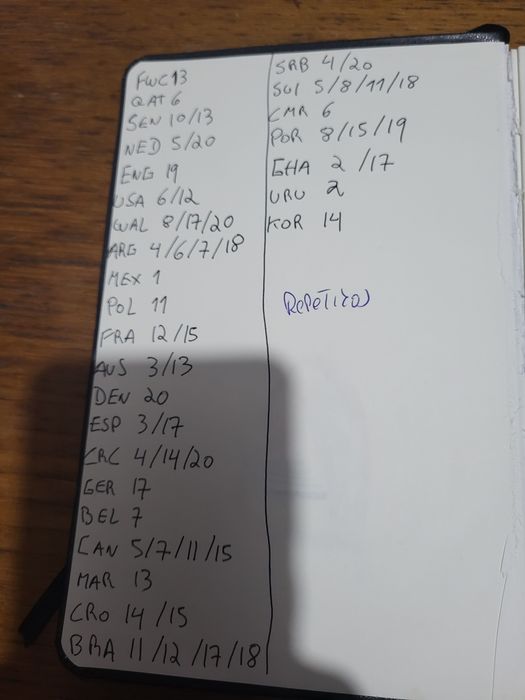 FWC 13
QAT 6
SEN 10/13
NED 5/20
ENG 19
USA 6/12
WAL 8/17/20
ARG 4/6/7/18
MEX 1
POL 11
FRA 12/15
AUS 3/13
DEN 20
ESP 3/17
CRC 4/14/20
GER 17
BEL 7
CAN 5/7/11/15
MAR 13
CRO 14/15
BRA 11/12/17/18
SRB 4/20
SUI 5/8/11/18
CMR 6
POR 8/15/19
GHA 2/17
URU 2
KOR 14
REPETIDAS